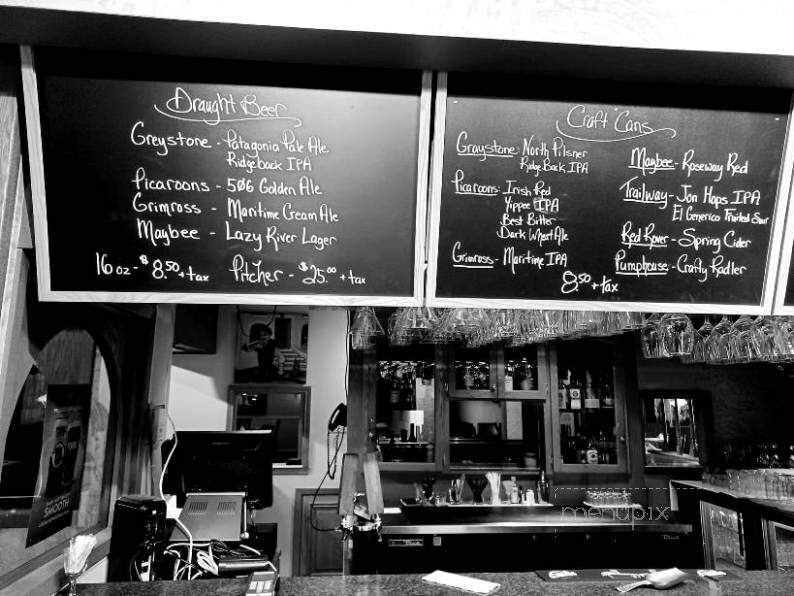 Draught Beer
Greystone - Patagonia Pale Ale
Ridgeback IPA
Picaroons - 506 Golden Ale
Grimross - Maritime Cream Ale
Maybee - Lazy River Lager
16oz - $8.50 + tax Pitcher - $25.00 + tax
Craft Cans
Graystone - North Pilsner
Ridge Back IPA
Picaroons - Irish Red
Yippee IPA
Best Bitter
Dark Wheat Ale
Grimross - Maritime IPA
Maybee - Roseway Red
Trailway - Jon Hops IPA
El Generico Fruited Sour
Red Rover - Spring Cider
Pumphouse - Crafty Radler
8.50 + tax
SMOOTH
menupix